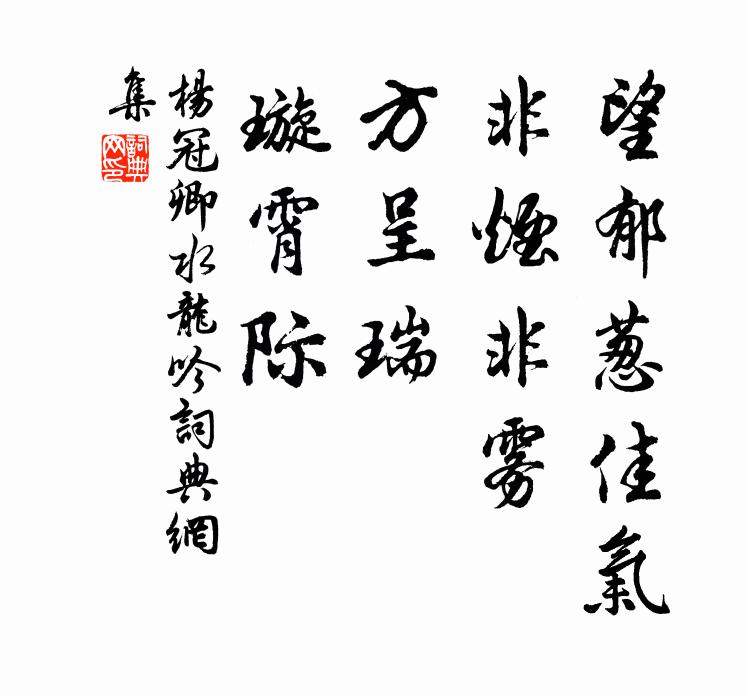 望郁葱佳氣
非煙非雾
方呈瑞
璇霄际
楊冠卿水龍吟詞典網
集
詞典
网印